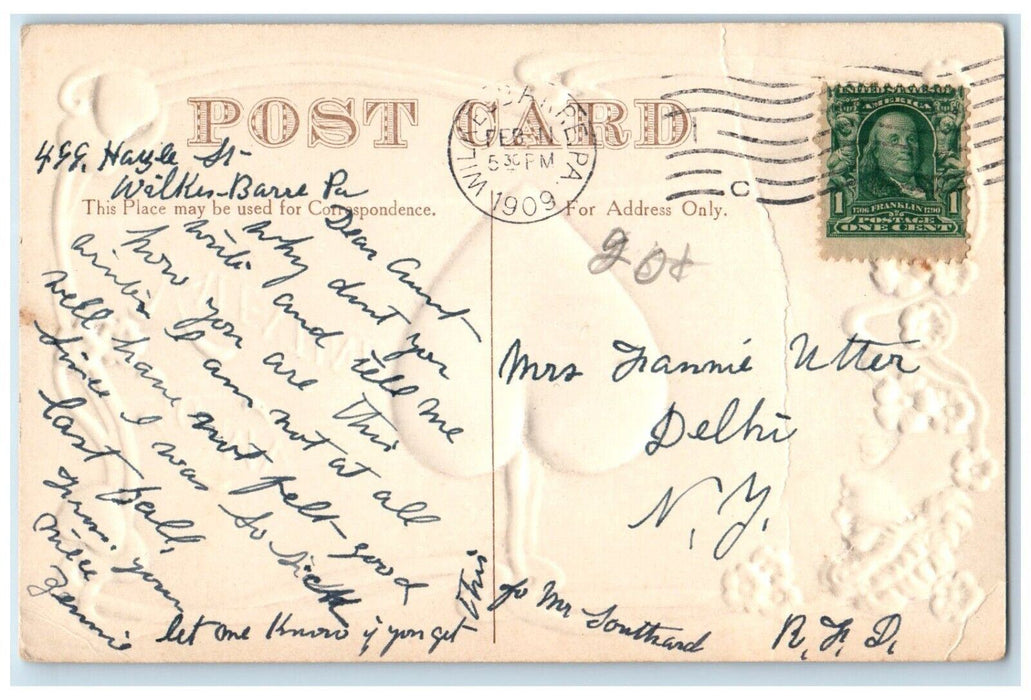 POST CARD
WILKES-BARRE, PA.
FEB 11
5 30 PM
1909
C
UNITED STATES OF AMERICA
1706 FRANKLIN 1790
POSTAGE
1 1
ONE CENT
499 Hazle St
Wilkes-Barre Pa
This Place may be used for Correspondence.
For Address Only.
20¢
Dear Aunt
Why dont you
write and tell me
how you are this
winter I am not at all
well have not felt good
since I was so sick
last fall.
from your
niece
Jennie
let me know if you get
this
Mrs Fannie Utter
Delhi
N.Y.
c/o Mr Southard
R.F.D.